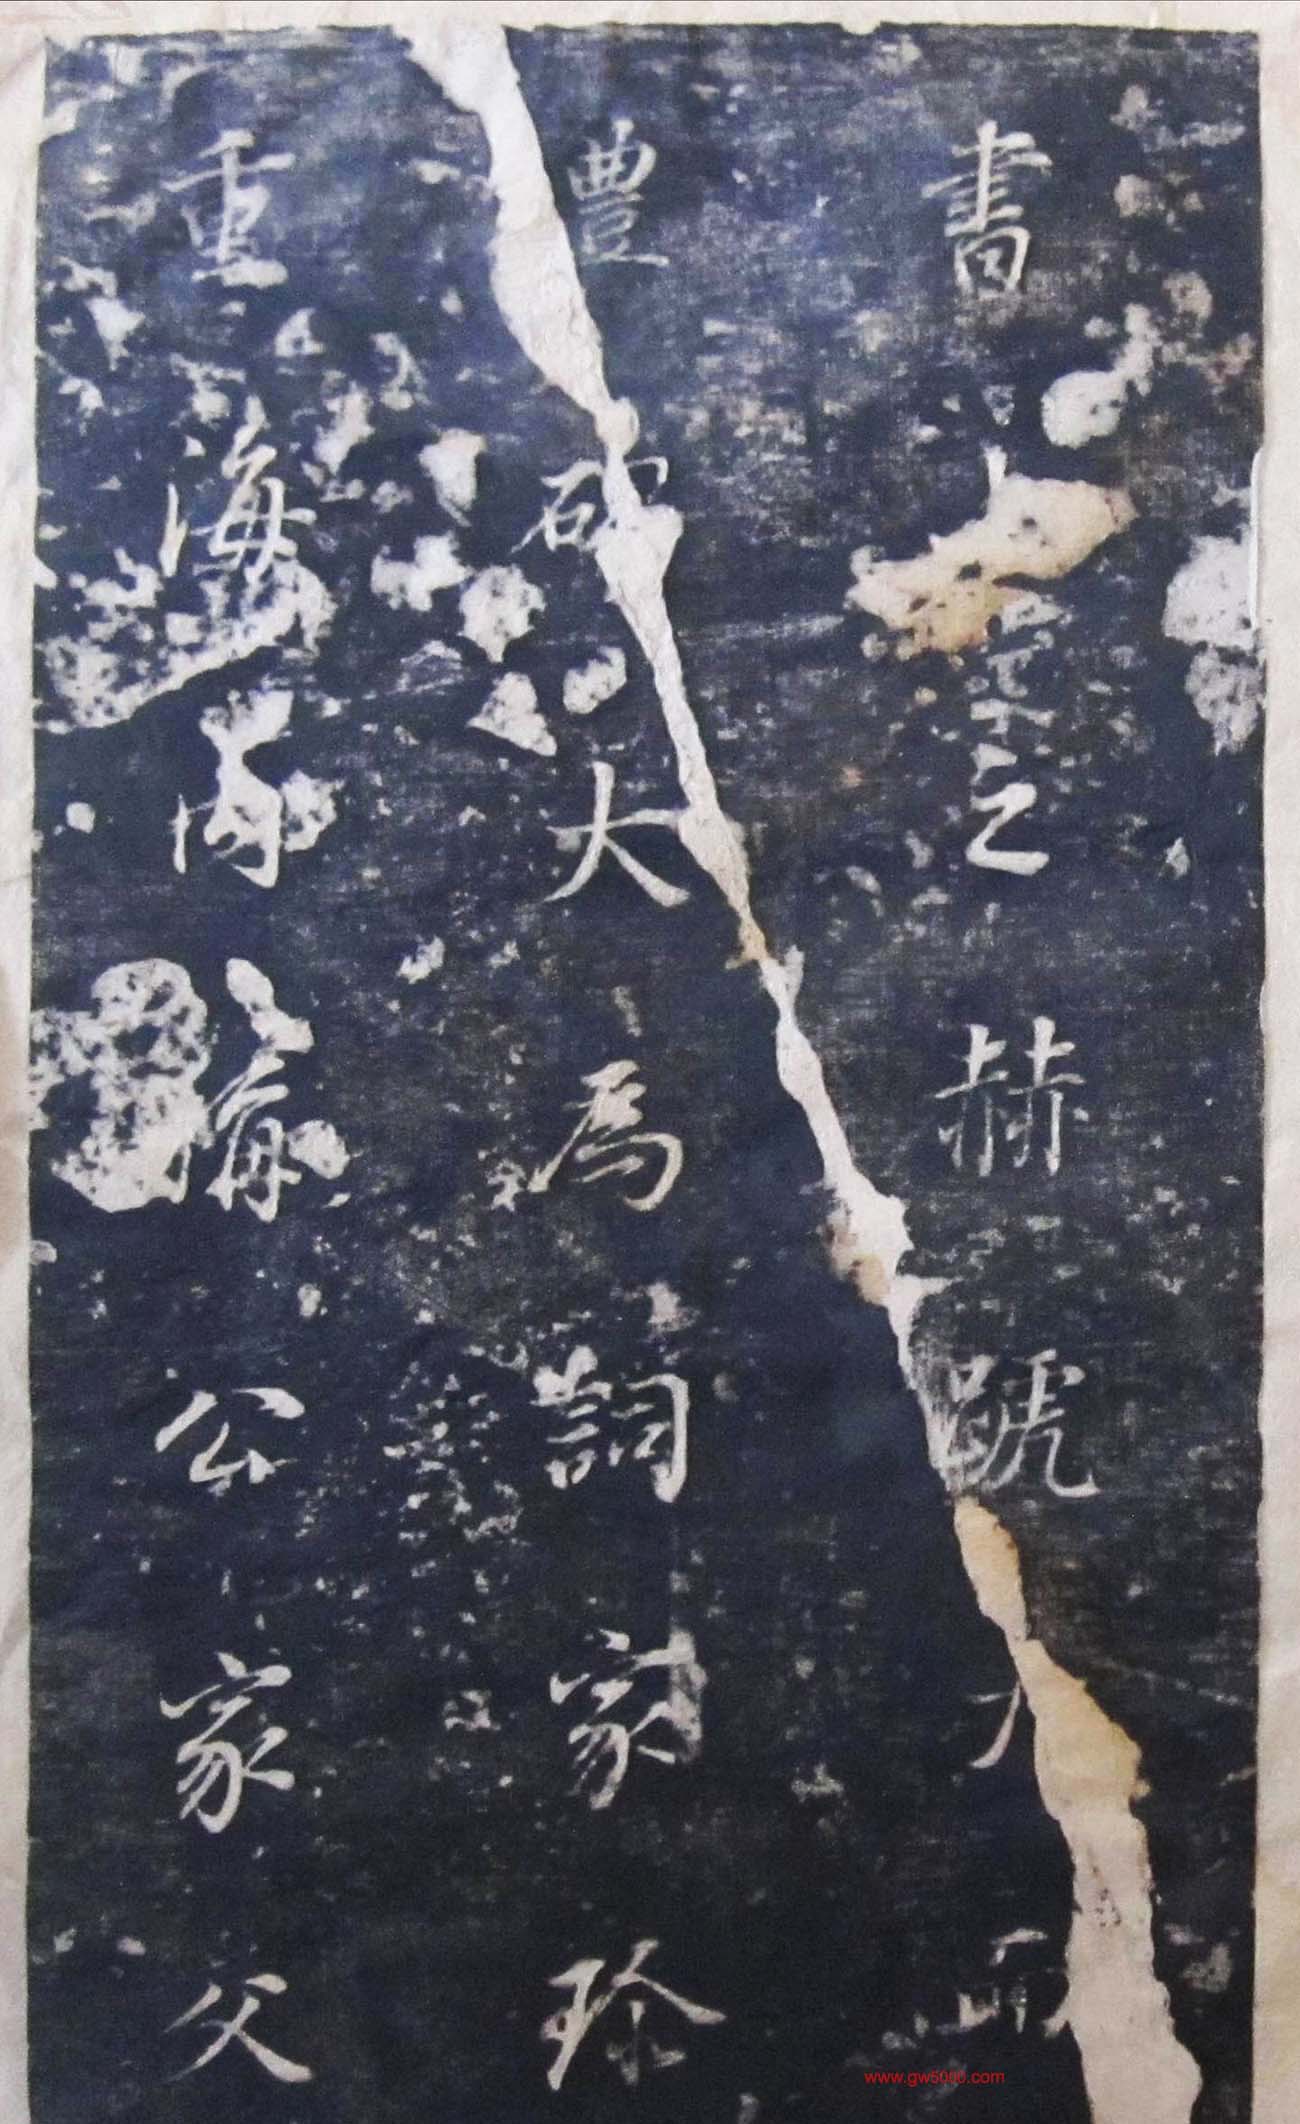 書之赫號人
豊碑大為詞家珍
重海内嫵公家父
www.gw5000.com